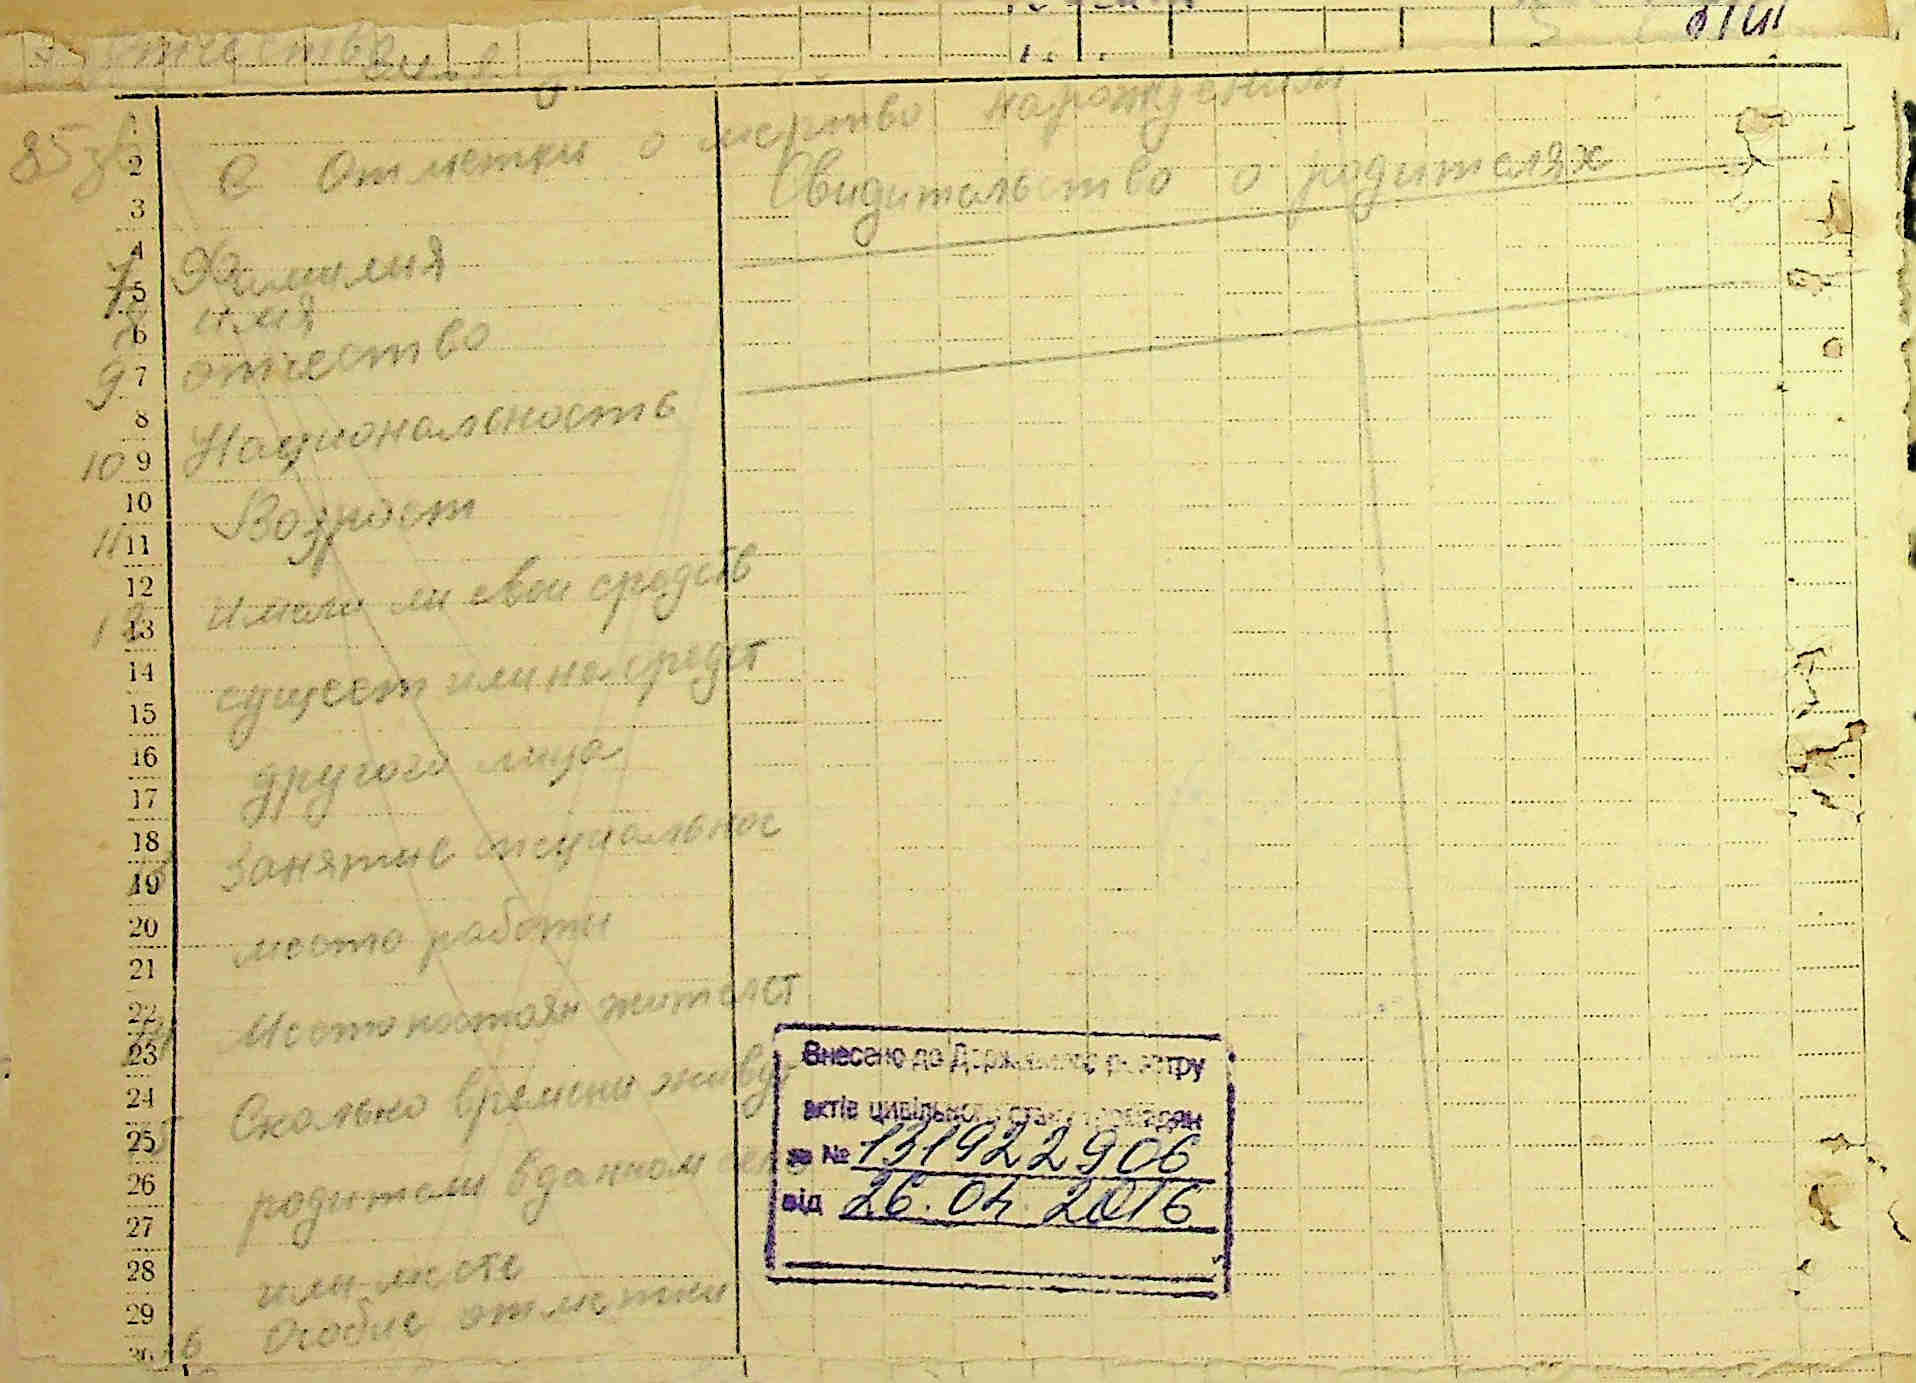 отчество
85
1
2 в Отметки о мертво нарождении
Свидительство о родителях
3
4
7 5 Фамилия
8 6 имя
9 7 отчество
8
10 9 Национальность
10
11 11 Возраст
12
12 13 Имели ли свои средств
14
15 сущест или на средст
16
17 другого лица
18
19 Занятие специальнос
20
21 место работи
22
23 Место постоян жителст
24
25 Сколько времени живут
26
27 родители в данном
28
29 или месте
6 Особые отметки
Внесено до Державного реєстру
актів цивільного стану громадян
за № 131922906
від 26.04.2016